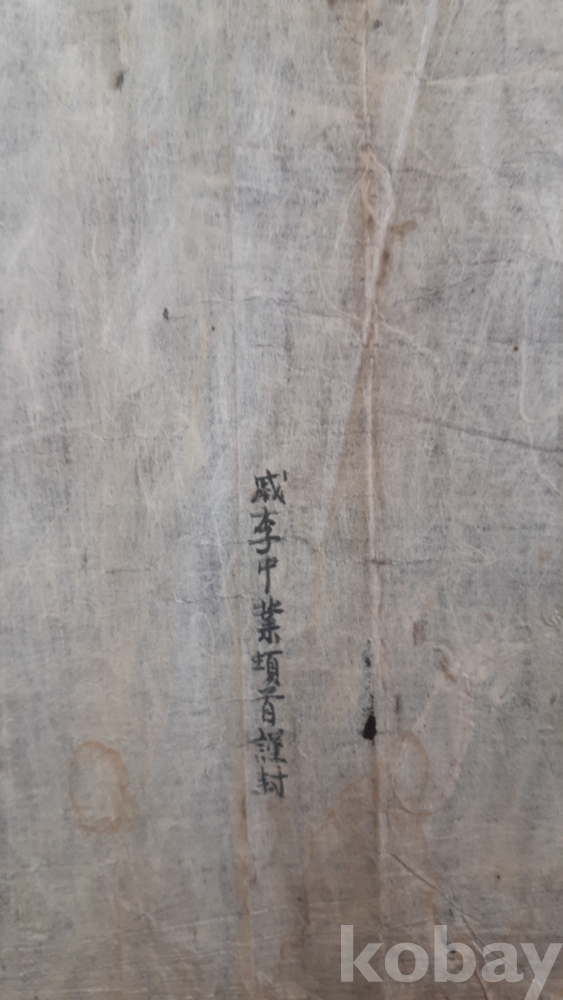 戚李中業頓首謹封
kobay